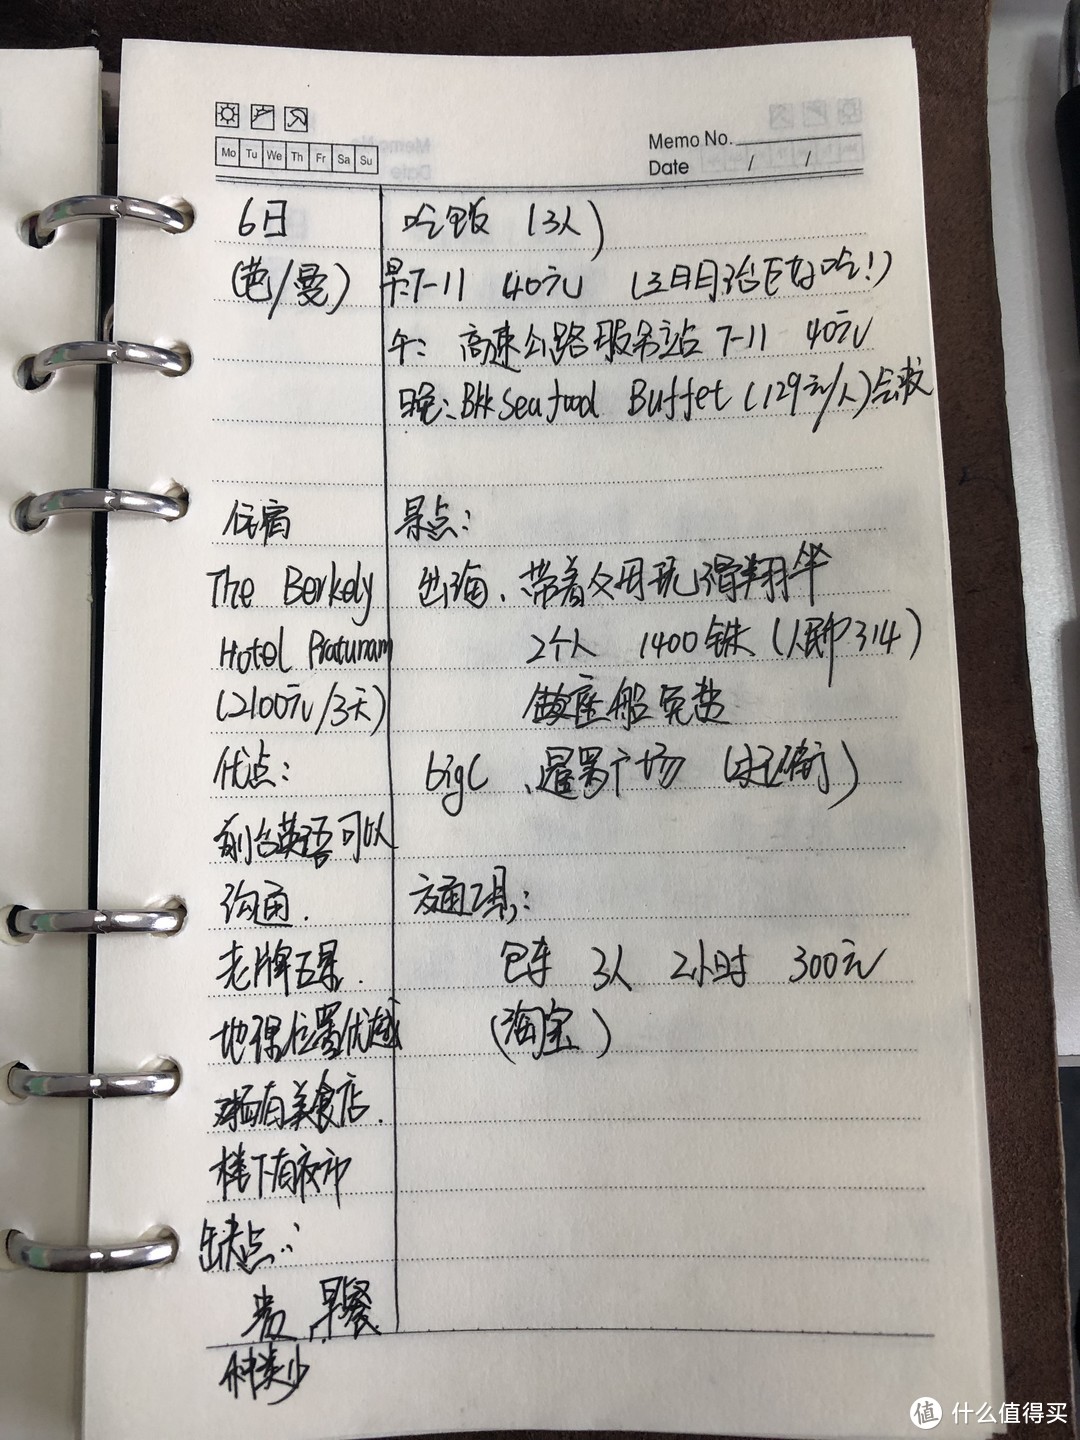 Mo Tu We Th Fr Sa Su
Memo No.
Date / /
6日
(芭/曼)
吃饭 (3人)
早:7-11 40元 (三明治巨好吃!)
午: 高速公路服务站 7-11 40元
晚: Bkk Seafood Buffet (129元/人)
住宿
The Berkely
Hotel Pratunam
(2100元/3天)
优点:
前台英语可以
沟通.
老牌五星.
地理位置优越
对面有美食店.
楼下有夜市
缺点:
贵,早餐
种类少
景点:
出海、带着父母玩滑翔伞
2个人 1400铢 (人民币314)
做座船免费
bigC、暹罗广场
交通工具:
包车 3人 2小时 300元
(淘宝)
值 什么值得买